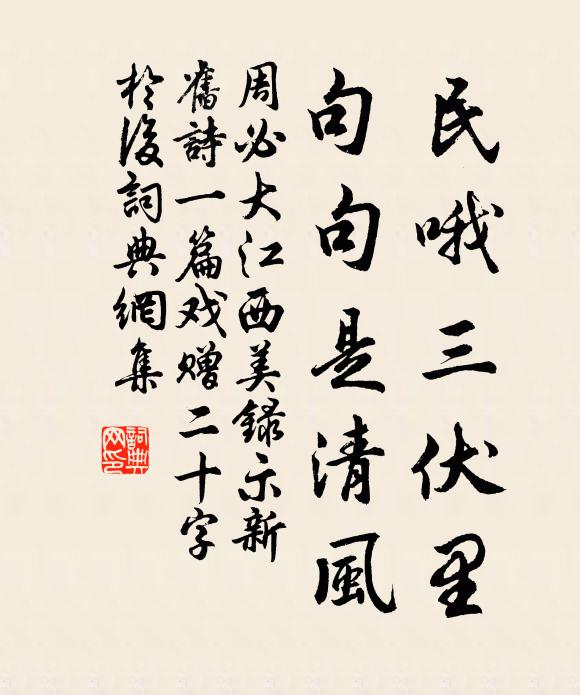 民哦三伏里
句句是清風
周必大江西美録示新
舊詩一篇戏赠二十字
於後詞典網集
詞典
网印